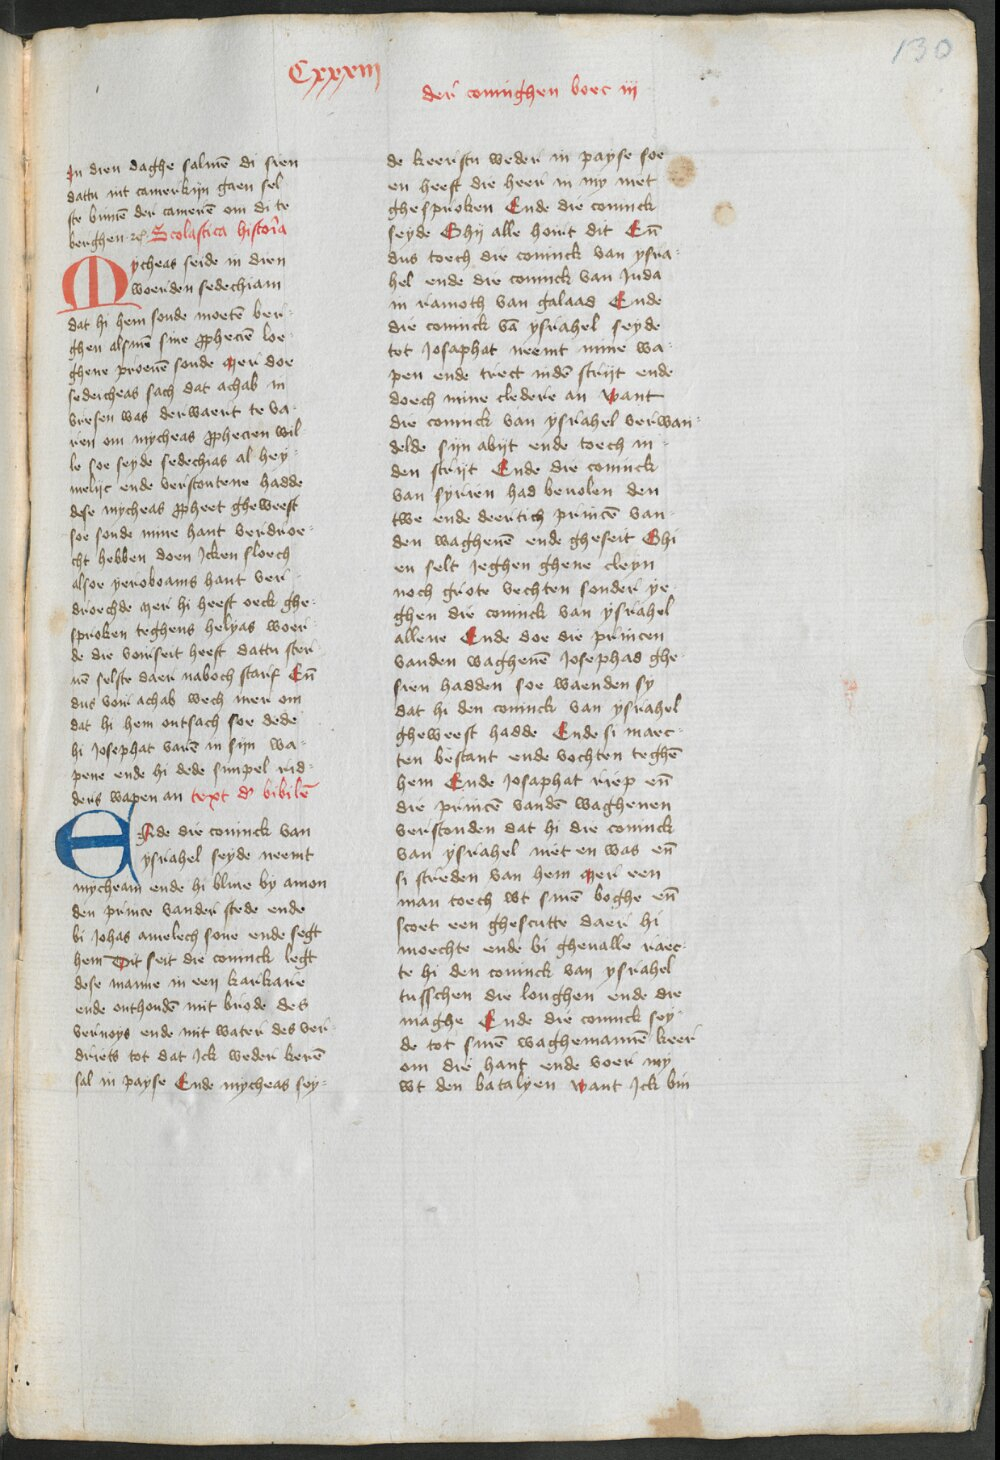 130
Cxxxiii
der coninghen boec iii
In dien daghe salmē di sien
dattu wt camerkijn gaen sel
ste binnē der camerē om di te
berghen Scolastica histoīa
Mycheas seide in dien
woerden sedechiam
dat hi hem soude moetē ber-
ghen alsmē sine ꝓphecīē loe-
ghene proeuē soude Mer doe
sedeicheas sach dat achab in
vresen was derwaert te va-
ren om mycheas ꝓphecien wil-
le soe seyde sedechias al hey-
melijc ende verstontene hadde
dese mycheas ꝓpheet gheweest
soe soude mine hant verdroe-
cht hebben doen Icken sloech
alsoe yeroboams hant ver-
droechde Mer hi heeft oeck ghe-
sproken teghens helyas woer
de die voirseit heeft dattu ster
uē selste daer naboch starf Eñ
dus voir achab wech mer om
dat hi hem ontsach soe dede
hi Josephat varē in sijn wa-
pene ende hi dede simpel rid-
ders wapen an text d' bibilē
Ende die coninck van
ysrahel seyde neemt
mycheam ende hi bliue by amon
den prince vander stede ende
bi Johas amelech sone ende segt
hem Dit seit die coninck legt
dese manne in een karkarie
ende onthoudē mit brode des
vernoys ende mit water des ver-
driets tot dat Ick weder kerē
sal in payse Ende mycheas sey-
de keerstu weder in payse soe
en heeft die heer in my niet
ghesproken Ende die coninck
seyde Ghij alle hoirt dit Eñ
dus toech die coninck van ysra-
hel ende die coninck van Juda
in ramoth van galaad Ende
die coninck vā ysrahel seyde
tot Josaphat neemt mine wa-
pen ende trect indē strijt ende
doech mine cledere an want
die coninck van ysrahel verwan-
delde sijn abijt ende toech in
den strijt Ende die coninck
van syrien had beuolen den
twe ende deertich princē van
den waghenē ende gheseit Ghi
en selt Jeghen ghene cleyn
noch grote vechten sonder ye-
ghen die coninck van ysrahel
allene Ende doe die princen
vanden waghenē Josephad ghe-
sien hadden soe waenden sy
dat hi den coninck van ysrahel
gheweest hadde Ende si maec-
ten bestant ende vochten teghē
hem Ende Josaphat riep eñ
die princē vandē waghenen
verstonden dat hi die coninck
van ysrahel niet en was eñ
si streden van hem Mer een
man toech wt sinē boghe eñ
scoet een ghescutte daer hi
moechte ende bi gheualle raec-
te hi den coninck van ysrahel
tusschen die longhen ende die
maghe Ende die coninck sey-
de tot sinē waghemannē keer
om die hant ende voer my
wt den batalyen want Ick bin